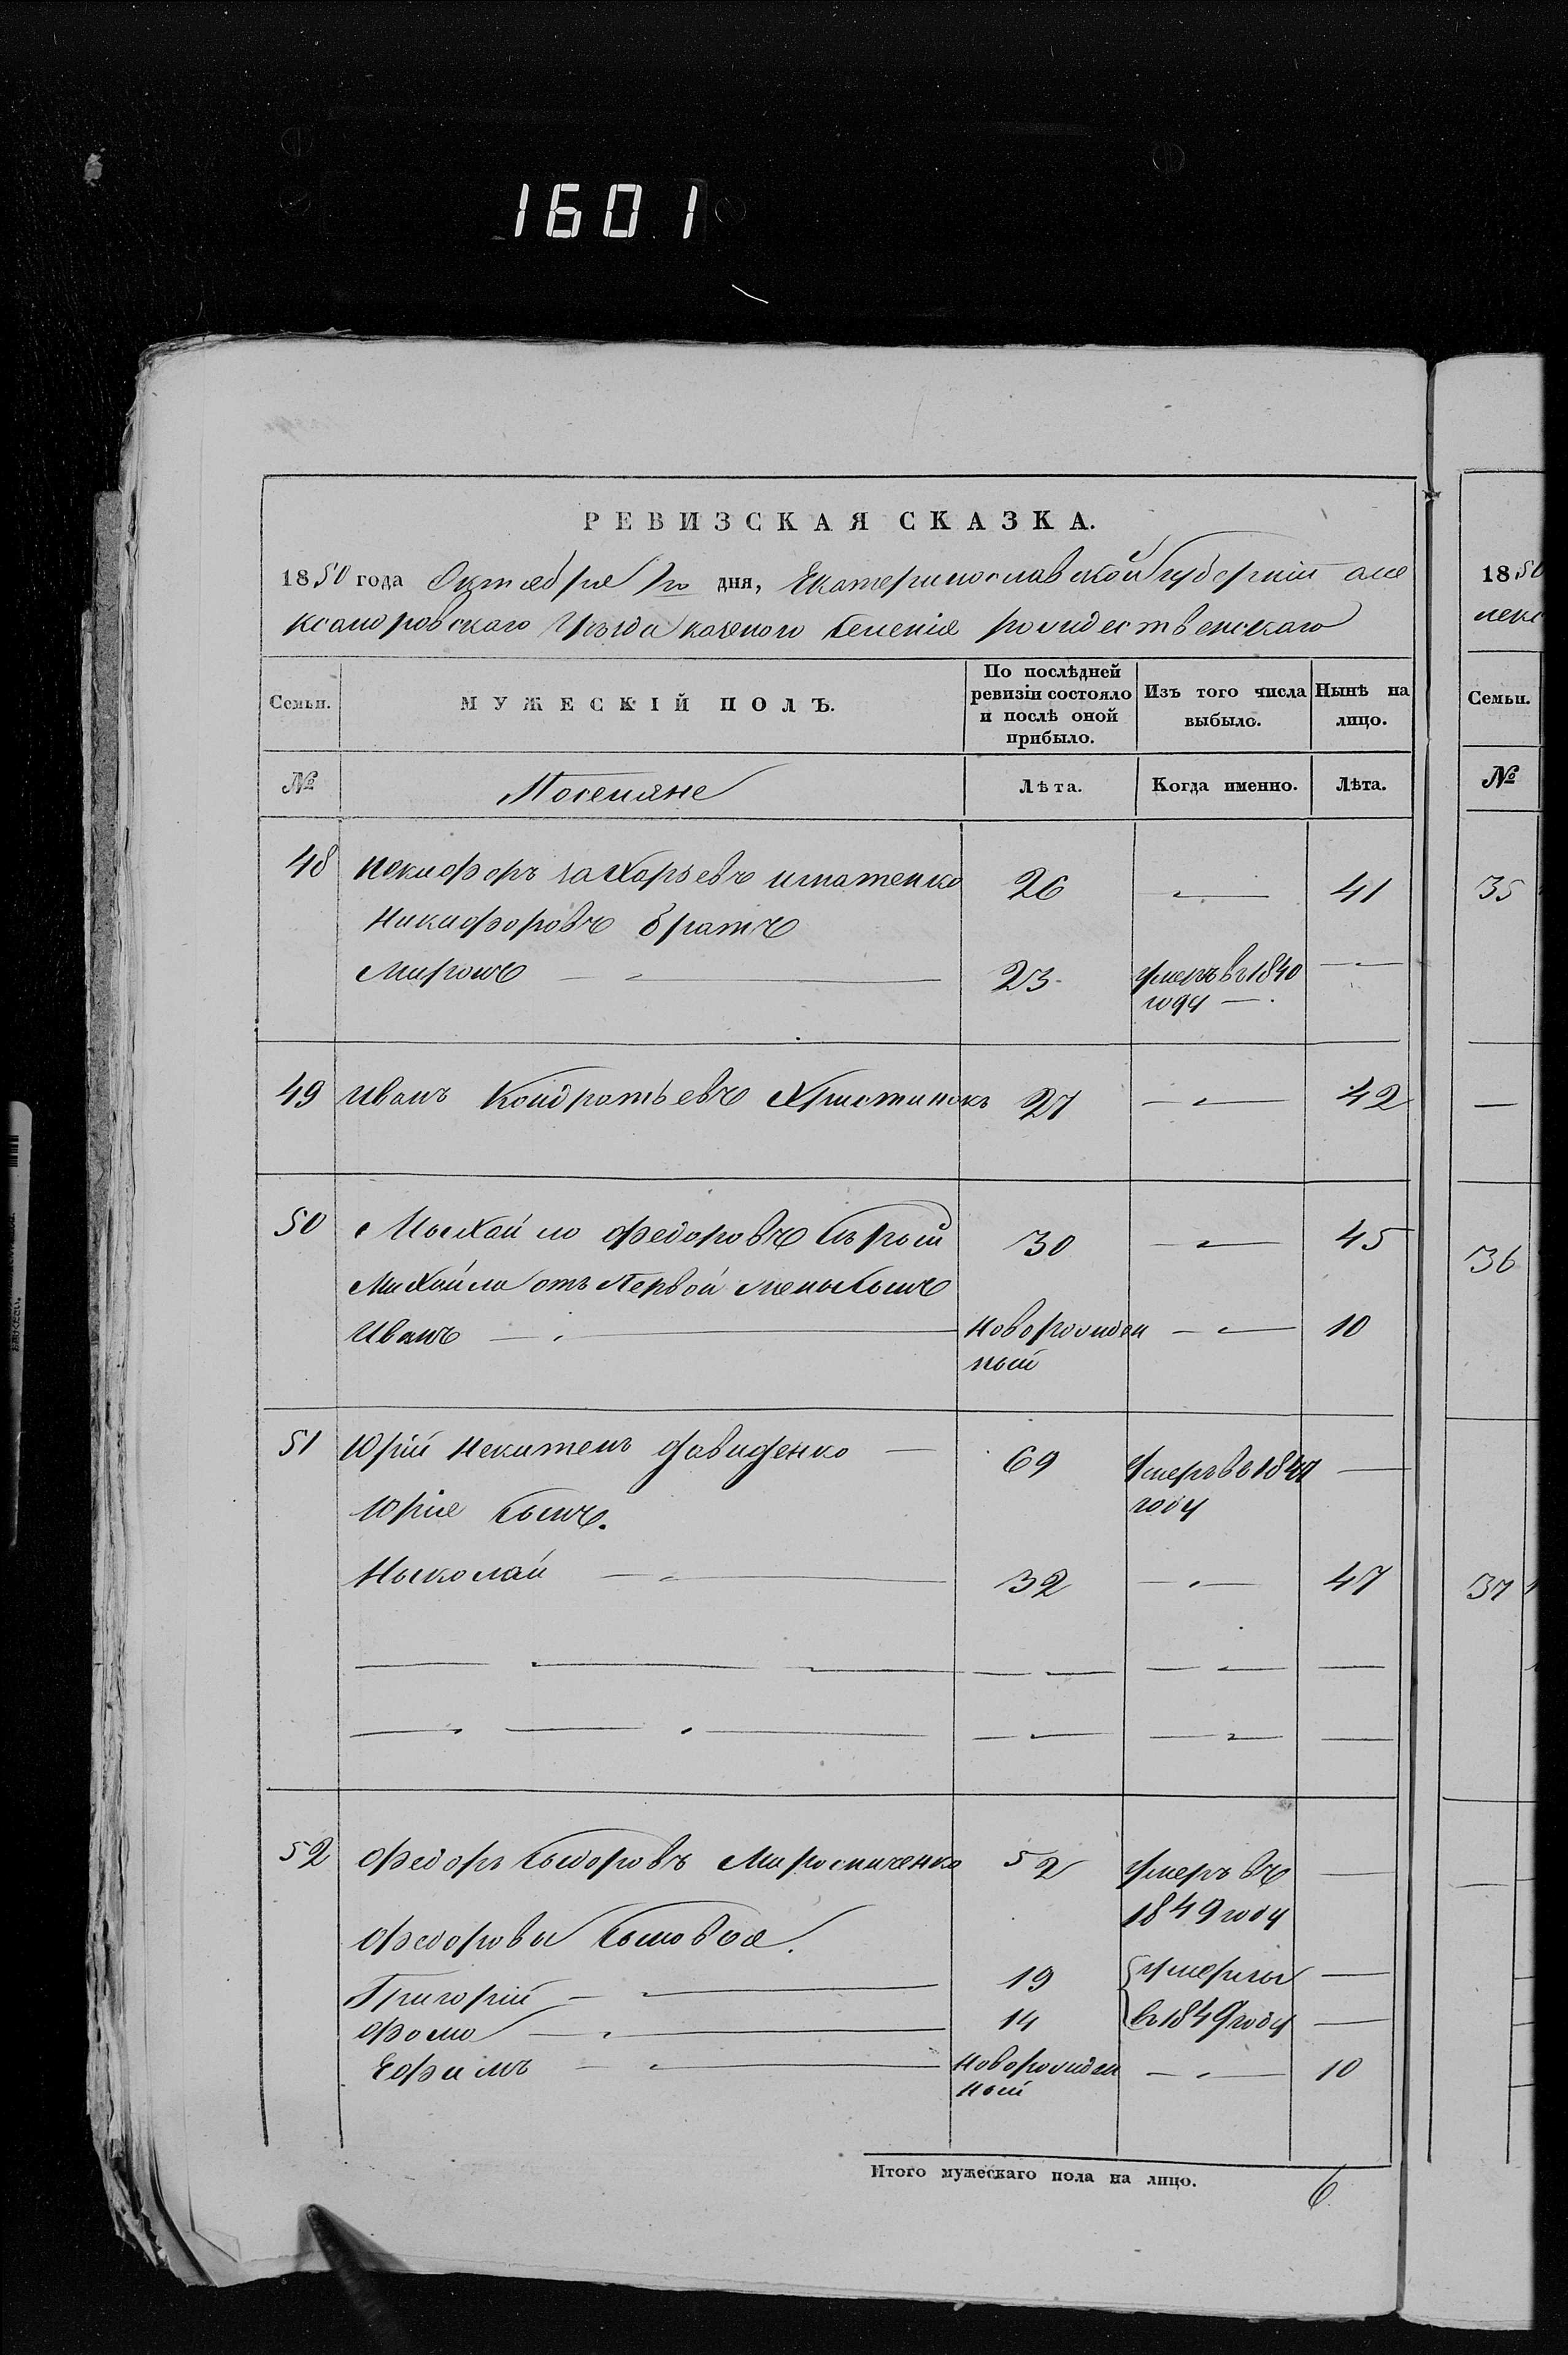 1601
РЕВИЗСКАЯ СКАЗКА.
1850 года Октября дня, Екатеринославской губернiи але
ксандровскаго уѣзда казеного селенiя рождественскаго
Семьи. МУЖЕСКІЙ ПОЛЪ. По послѣдней ревизіи состояло и послѣ оной прибыло. Изъ того числа выбыло. Нынѣ на лицо.
№ Поселяне Лѣта. Когда именно. Лѣта.
48 Некифоръ захарьевъ игнатенко 26 — 41
Никифоровъ братъ
Миронъ — 23 умеръ въ 1840 —
году —
49 Иванъ Кондратьевъ Христинокъ 27 — 42
50 Мыхайло федоровъ сѣрый 30 — 45
Михайла отъ Первой жены сынъ
Иванъ — новорожден — 10
ный
51 Юрiй Некитенъ давиденко — 69 умеръ в 1847 —
году
Юрiя сынъ.
Ныколай — 32 — 47
52 федоръ сыдоровъ Мирошниченко 52 умеръ въ —
1849 году
федоровы сыновья.
Григорiй — 19 умерлы —
фома — 14 в 1849 году —
Ефимъ — новорожден — 10
ный
Итого мужескаго пола на лицо. 6
1850
лекс
Семьи.
№
35
—
36
37
—